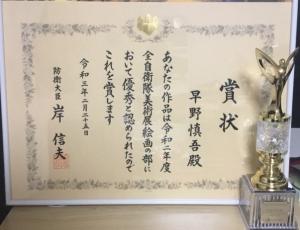 賞状
早野慎吾殿
あなたの作品は令和二年度
全自衛隊美術展絵画の部に
おいて優秀と認められたので
これを賞します
令和三年二月二十五日
防衛大臣 岸信夫